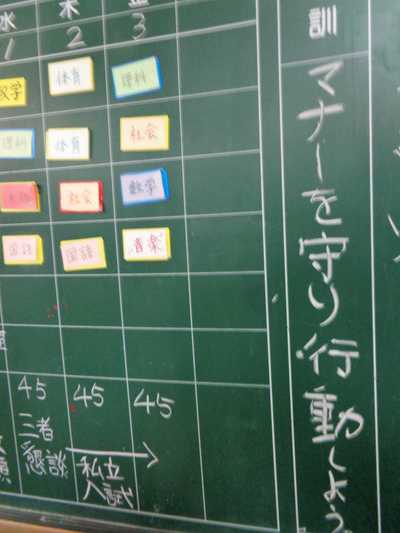 水 木 金
1 2 3
数学 体育 理科
理科 体育 社会
社会 数学
国語 国語 音楽
45 45 45
三者
懇談
私立
入試
訓
マナーを守り行動しよう